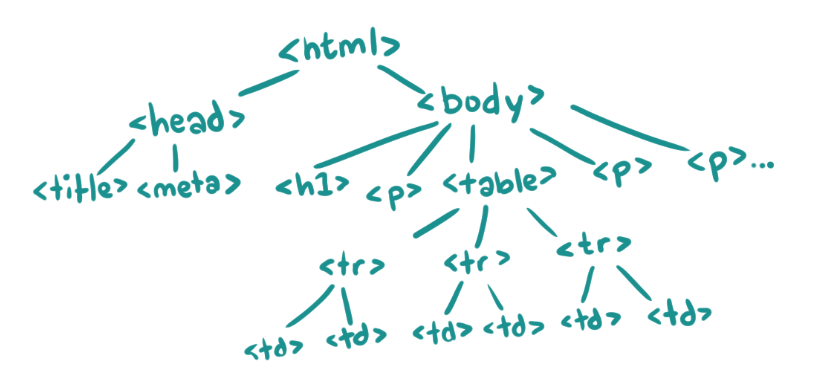 <html>
<head> <body>
<title> <meta> <h1> <p> <table> <p> <p>...
<tr> <tr> <tr>
<td> <td> <td> <td> <td> <td>